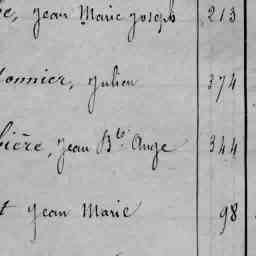 Jean Marie Joseph 213
Julien 374
Jean Bte Ange 344
Jean Marie 98